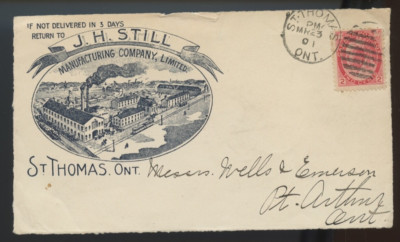 IF NOT DELIVERED IN 5 DAYS
RETURN TO
J. H. STILL
MANUFACTURING COMPANY, LIMITED
ST THOMAS. ONT.
ST. THOMAS
PM
MR 23
01
ONT.
Messrs. Wells & Emerson
Pt. Arthur
Ont.